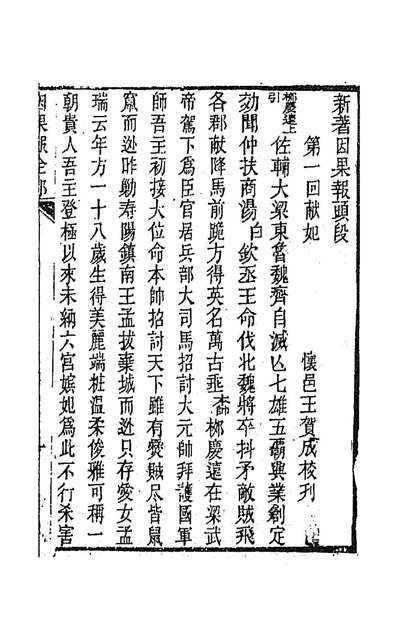 新著因果報頭段
第一回献妃　懷邑王賀成校刋
柳慶遠上引　佐輔大梁東魯魏齊自滅亾七雄五霸興業創定
効聞仲扶商湯白欽丞王命伐北魏將卒抖矛敵賊飛
各郡献降馬前跪方得英名萬古垂本帥柳慶遠在梁武
帝駕下為臣官居兵部大司馬招討大元帥拜護國軍
師吾主初接大位命本帥招討天下雖有賊尽皆鼠
竄而迯昨勦寿陽鎮南王孟拔棄城而迯只存愛女孟
瑞云年方一十八歲生得美麗端粧温柔俊雅可稱一
朝貴人吾主登極以來未納六宫嬪妃為此不行杀害
因果報全部